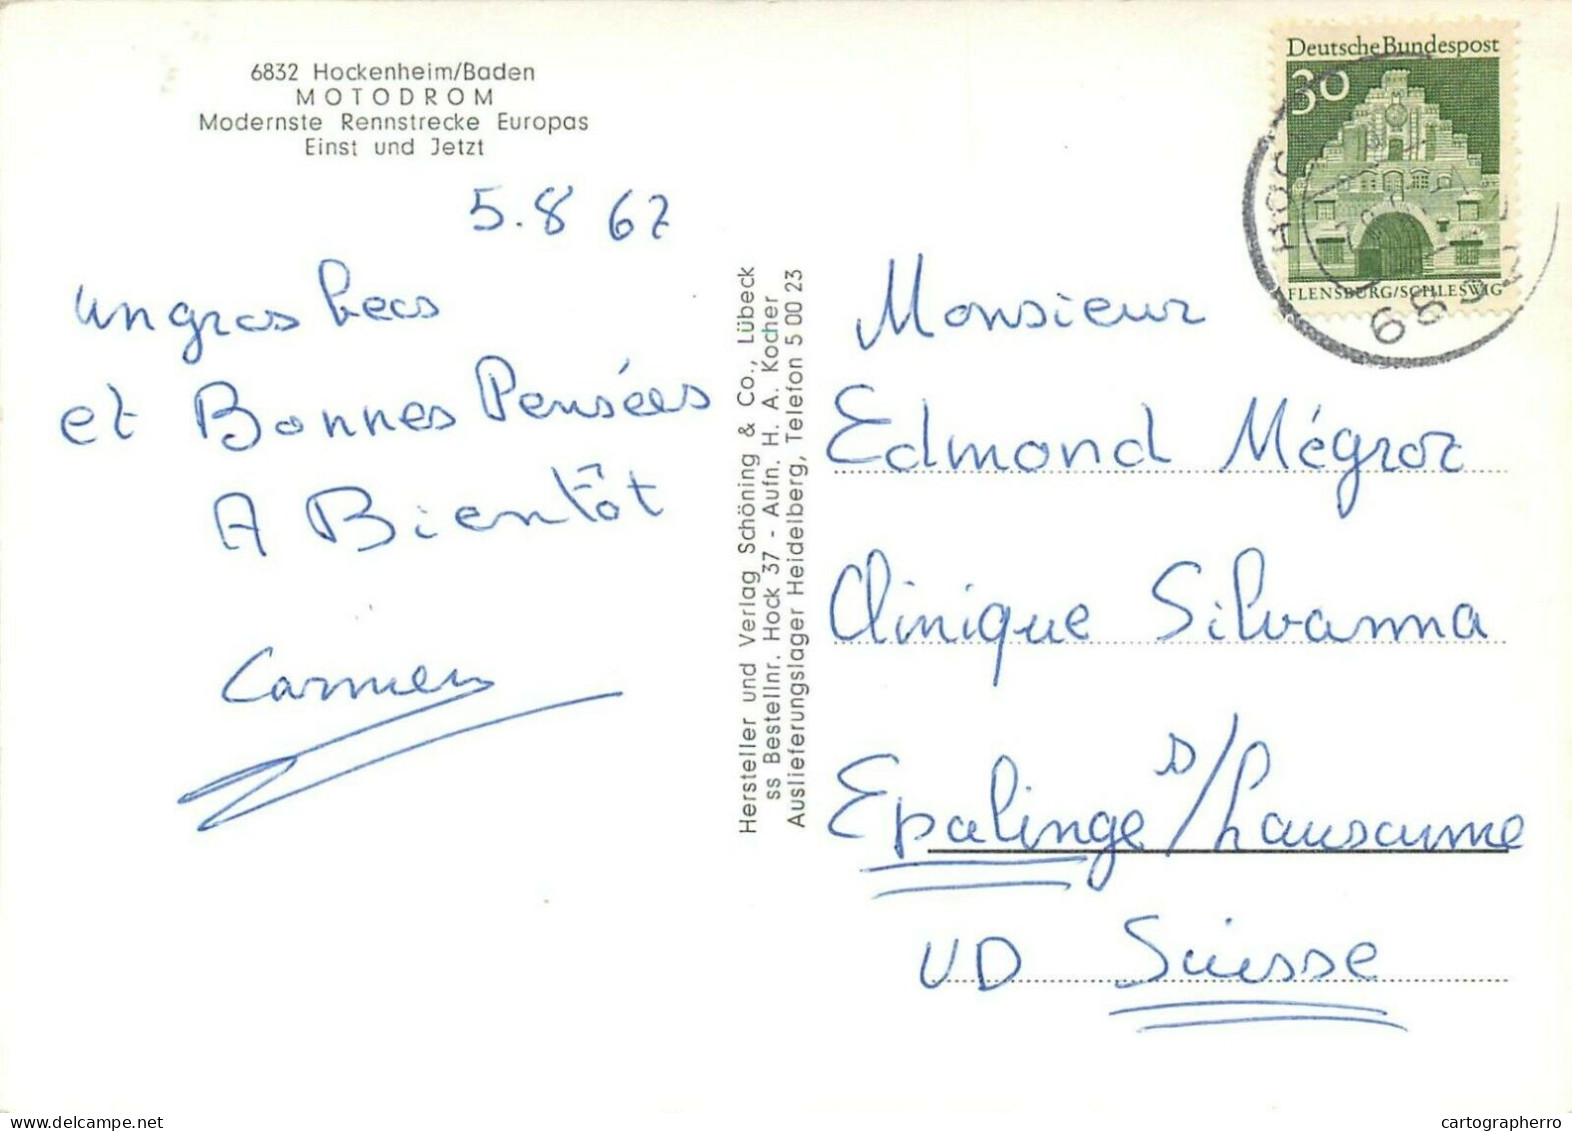 6832 Hockenheim/Baden
MOTODROM
Modernste Rennstrecke Europas
Einst und Jetzt
5.8 67
un gros becs
et Bonnes Pensées
A Bientôt
Carmen
Hersteller und Verlag Schöning & Co., Lübeck
ss Bestellnr. Hock 37 - Aufn. H. A. Kocher
Auslieferungslager Heidelberg, Telefon 5 00 23
Deutsche Bundespost
30
FLENSBURG/SCHLESWIG
Monsieur
Edmond Mégroz
Clinique Silvanna
Epalinge s/Lausanne
VD Suisse
www.delcampe.net
cartographerro